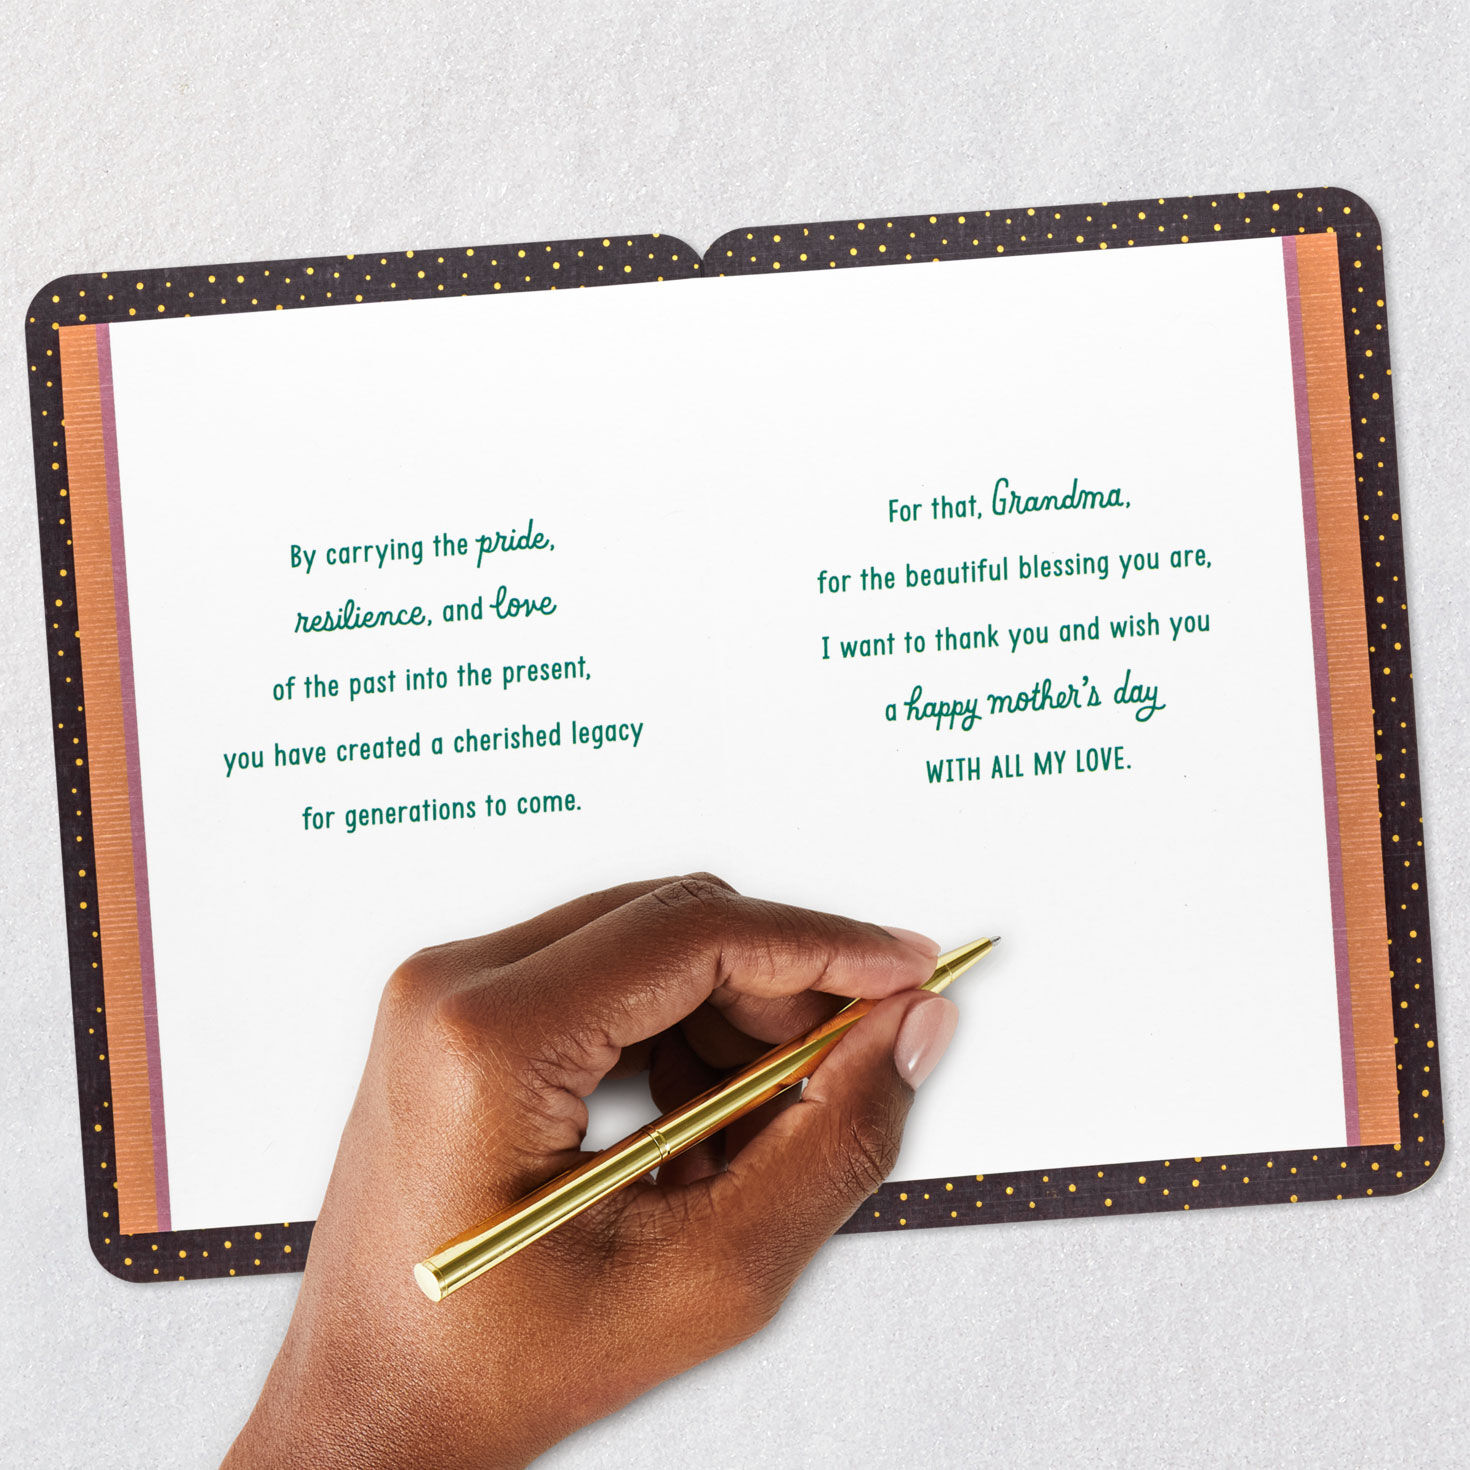 By carrying the pride,
resilience, and love
of the past into the present,
you have created a cherished legacy
for generations to come.
For that, Grandma,
for the beautiful blessing you are,
I want to thank you and wish you
a happy mother's day
WITH ALL MY LOVE.